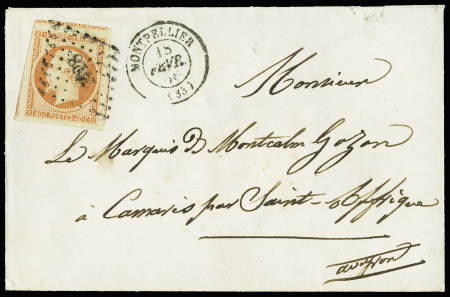 MONTPELLIER
15
FEVR.
(33)
40·C·POSTES·40·C
Monsieur
Le Marquis de Montcalm Gozon
à Camarès par Saint-Affrique
aveyron